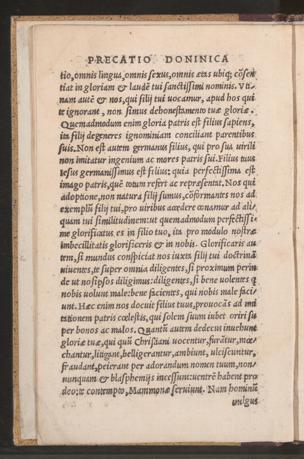 PRECATIO DOMINICA
tio, omnis lingua, omnis sexus, omnis ætas ubiq; cõsen
tiat in gloriam & laudẽ tui sanctissimi nominis. Vti
nam autẽ & nos, qui filij tui uocamur, apud hos qui
te ignorant, non simus dehonestamento tuæ gloriæ.
Quemadmodum enim gloria patris est filius sapiens,
ita filij degeneres ignominiam conciliant parentibus
suis. Non est autem germanus filius, qui pro sua uirili
non imitatur ingenium ac mores patris sui. Filius tuus
Iesus germanissimus est filius: quia perfectissima est
imago patris, quẽ totum refert ac repræsentat. Nos qui
adoptione, non natura filij sumus, cõformantes nos ad
exemplũ filij tui, pro uiribus accedere conamur ad ali⸗
quam tui similitudinem: ut quemadmodum perfectissi⸗
me glorificatus es in filio tuo, ita pro modulo nostræ
imbecillitatis glorificeris & in nobis. Glorificaris au
tem, si mundus conspiciat nos iuxta filij tui doctrinã
uiuentes, te super omnia diligentes, si proximum perin
de ut nosipsos diligimus: diligentes, si bene uolentes q̃
nobis uolunt male: bene facientes, qui nobis male faci
unt. Hæc enim nos docuit filius tuus, prouocãs ad imi
tationem patris cœlestis, qui solem suum iubet oriri su
per bonos ac malos. Quantũ autem dedecus inuehunt
gloriæ tuæ, qui quũ Christiani uocentur, furãtur, mœ⸗
chantur, litigant, belligerantur, ambiunt, ulciscuntur,
fraudant, peierant per adorandum nomen tuum, non⸗
nunquam & blasphemijs incessunt: uentrẽ habent pro
deo, te contempto, Mammonæ seruiunt. Nam hominũ
uulgus